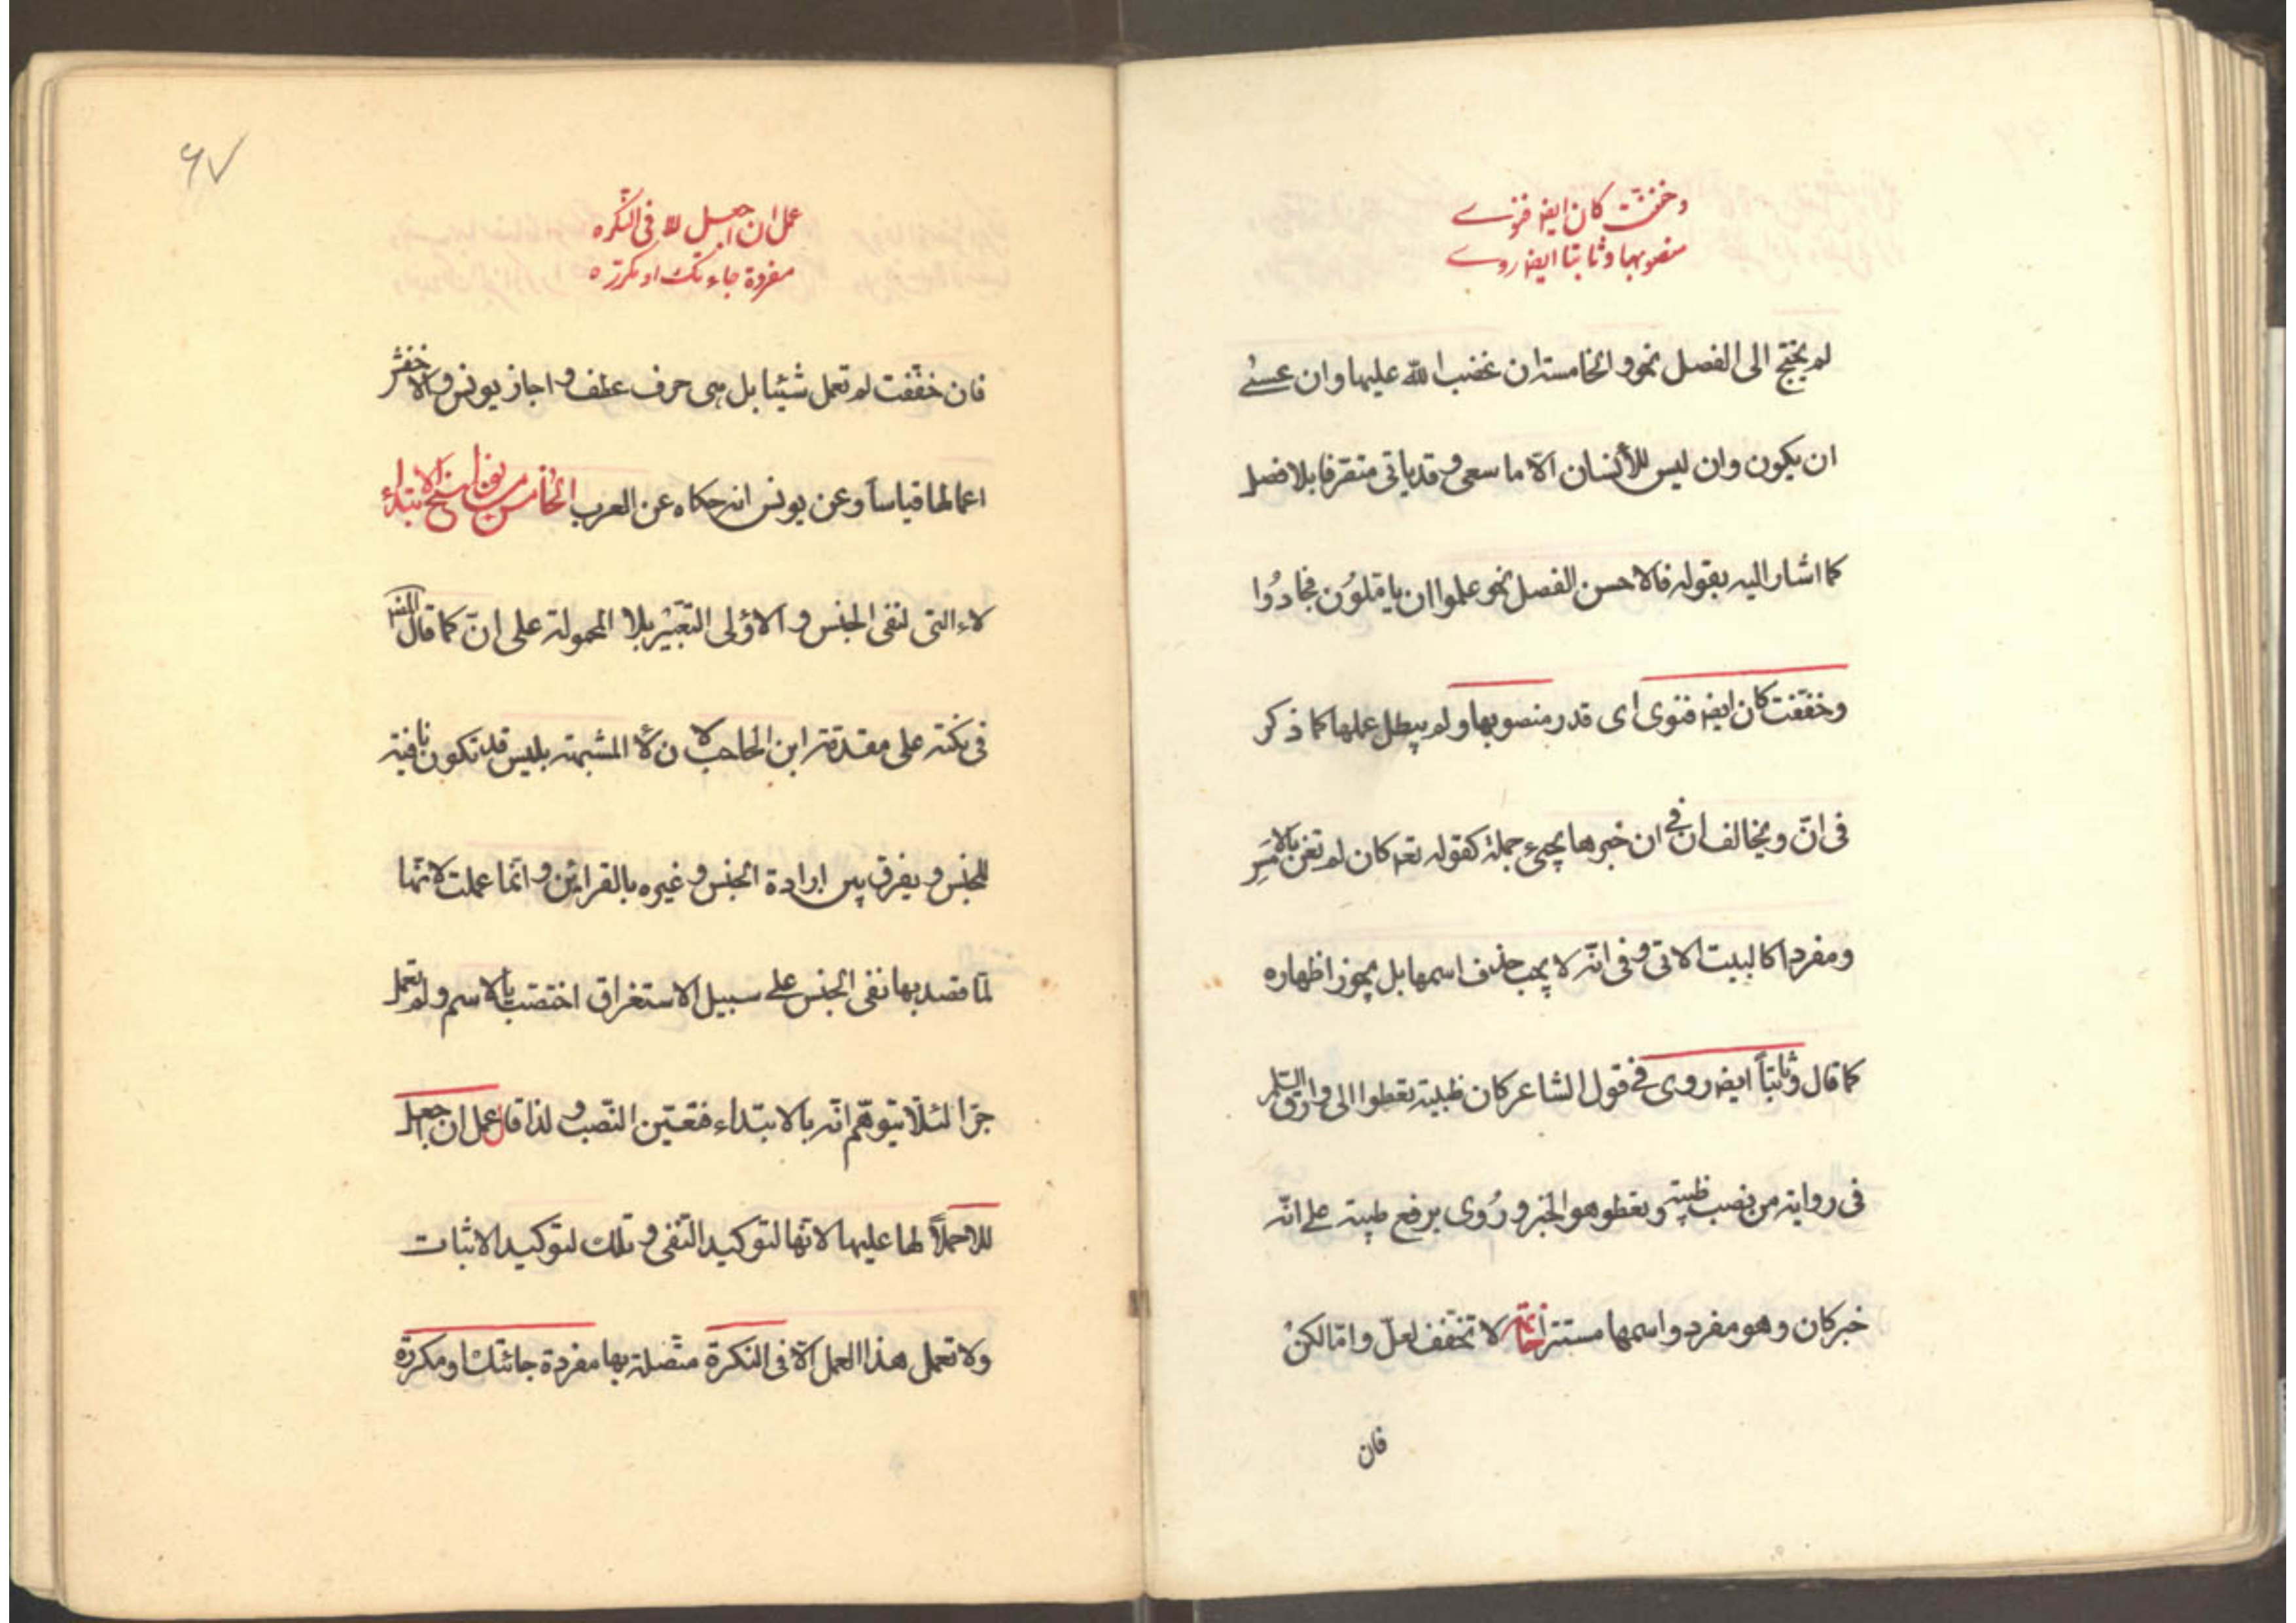 وخففت كان ايضه فنوى
منصوبها وثابتا ايضه روى
لم يحتج الى الفصل نحو والخامسة ان غضب الله عليها وان عسى
ان يكون وان ليس للأنسان الّا ما سعى وقد ياتى متفرقا بلا فصل
كما اشار اليه بقوله فالاحسن الفصل نحو علموا ان ياملون فجادوا
وخفّفت كان ايضه فنوى اى قدر منصوبها ولم يبطل عملها كما ذكر
فى انّ ويخالف ان فى ان خبرها يجيء جملة كقوله تعه كان لم تغن بالامسِ
ومفردا كالبيت الاتى وفى انّه لا يجب حذف اسمها بل يجوز اظهاره
كما قال وثابتاً ايضه روى فى قول الشاعر كان ظبية تعطوا الى وارق السّلم
فى رواية من نصب ظبية وتعطو هو الخبر ورُوى برفع ظبية على انّه
خبر كان وهو مفرد واسمها مستتر خاتمة لا تخفّف لعلّ وامّا لكنْ
فان
۶۷
عمل ان اجعل للا فى النّكره
مفردة جاءتك او مكرّره
فان خفّفت لم تعمل شيئا بل هى حرف عطف واجاز يونس والاخفش
اعمالها قياساً وعن يونس انه حكاه عن العرب الخامس من نواسخ الابتداء
لاء التى لنفى الجنس والاولى التّعبير بلا المحمولة على انّ كما قال المصه
فى نكته على مقدمة ابن الحاجب لان لا المشبهة بليس قد تكون نافية
للجنس ويفرق بين ارادة الجنس وغيره بالقرائن وانّما عملت لانّها
لمّا قصد بها نفى الجنس على سبيل الاستغراق اختصّت بالاسم ولم تعمل
جرّا لئلّا يتوهّم انّه بالابتداء فتعيّن النّصب ولذا قال عمل ان اجعل
للا حملاً لها عليها لانّها لتوكيد النّفى وتلك لتوكيد الاثبات
ولا تعمل هذا العمل الّا فى النكرة متّصلة بها مفردة جائتك او مكررة